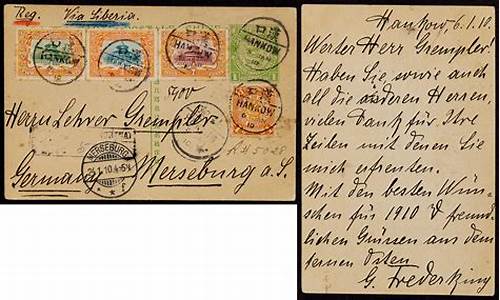 Reg. Via Siberia.
HANKOW
HANKOW
HANKOW
Herrn Lehrer Grempler
MERSEBURG
Germany Merseburg a. S.
Hankow, 6.1.10.
Werter Herr Grempler!
Haben Sie, sowie auch
all die anderen Herren,
vielen Dank für Ihre
Zeilen mit denen Sie
mich erfreuten.
Mit den besten Wün-
schen für 1910 & freund-
lichen Grüssen aus dem
fernen Osten
G. Frederking